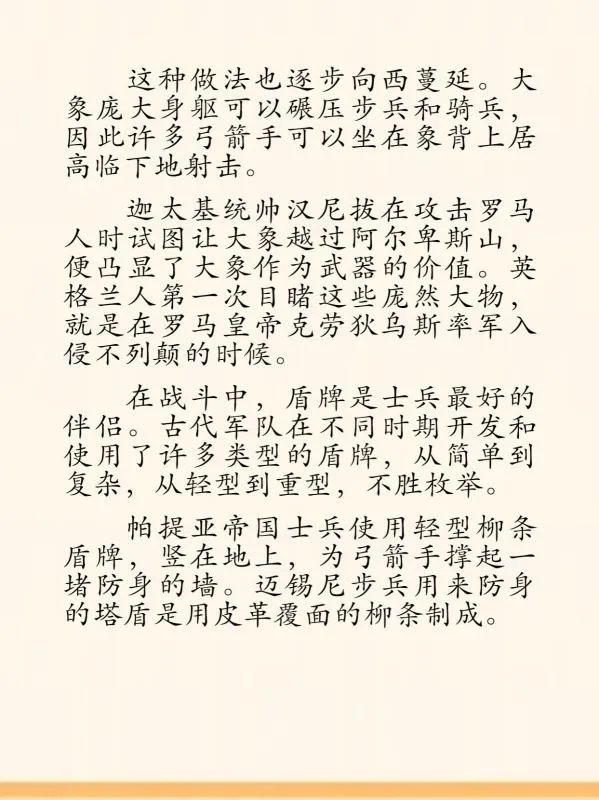 这种做法也逐步向西蔓延。大
象庞大身躯可以碾压步兵和骑兵，
因此许多弓箭手可以坐在象背上居
高临下地射击。
迦太基统帅汉尼拔在攻击罗马
人时试图让大象越过阿尔卑斯山，
便凸显了大象作为武器的价值。英
格兰人第一次目睹这些庞然大物，
就是在罗马皇帝克劳狄乌斯率军入
侵不列颠的时候。
在战斗中，盾牌是士兵最好的
伴侣。古代军队在不同时期开发和
使用了许多类型的盾牌，从简单到
复杂，从轻型到重型，不胜枚举。
帕提亚帝国士兵使用轻型柳条
盾牌，竖在地上，为弓箭手撑起一
堵防身的墙。迈锡尼步兵用来防身
的塔盾是用皮革覆面的柳条制成。